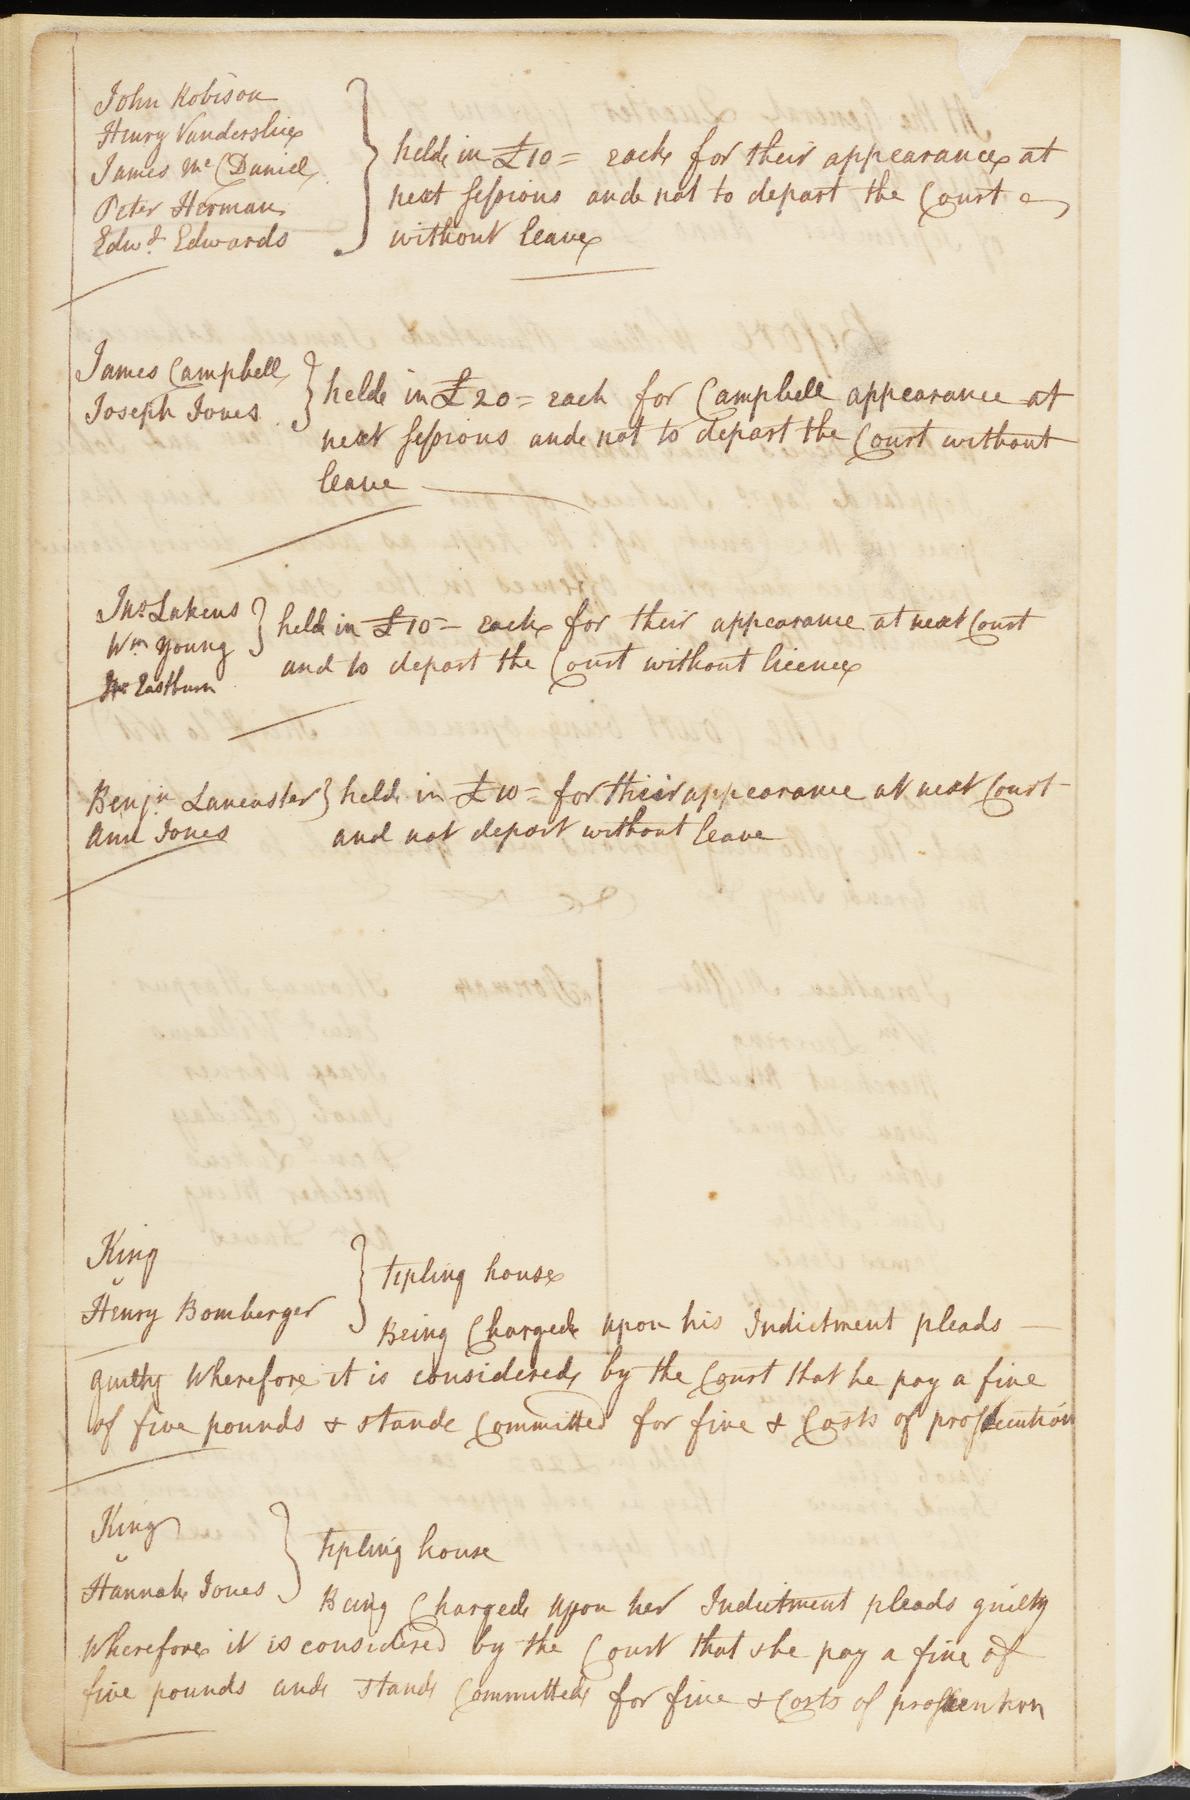 John Robison
Henry Vanderslice
James Mc Daniel
Peter Herman
Edwd. Edwards
held in £10= each for their appearance at
next sessions and not to depart the Court
without leave
James Campbell
Joseph Jones
held in £20= each for Campbell appearance at
next sessions and not to depart the Court without
leave
Jno. Lukens
Wm Young
Jno Eastburn
held in £10= each for their appearance at next Court
and to depart the Court without licence
Benjn. Lancaster
Ann Jones
held in £10= for their appearance at next Court
and not depart without leave
King
v
Henry Bomberger
tipling house
Being Charged upon his Indictment pleads
guilty Wherefore it is considered by the Court that he pay a fine
of five pounds & stand Committed for fine & Costs of prosecution
King
v
Hannah Jones
tipling house
Being Charged upon her Indictment pleads guilty
Wherefore it is considered by the Court that she pay a fine of
five pounds and stand Committed for fine & Costs of prosecution